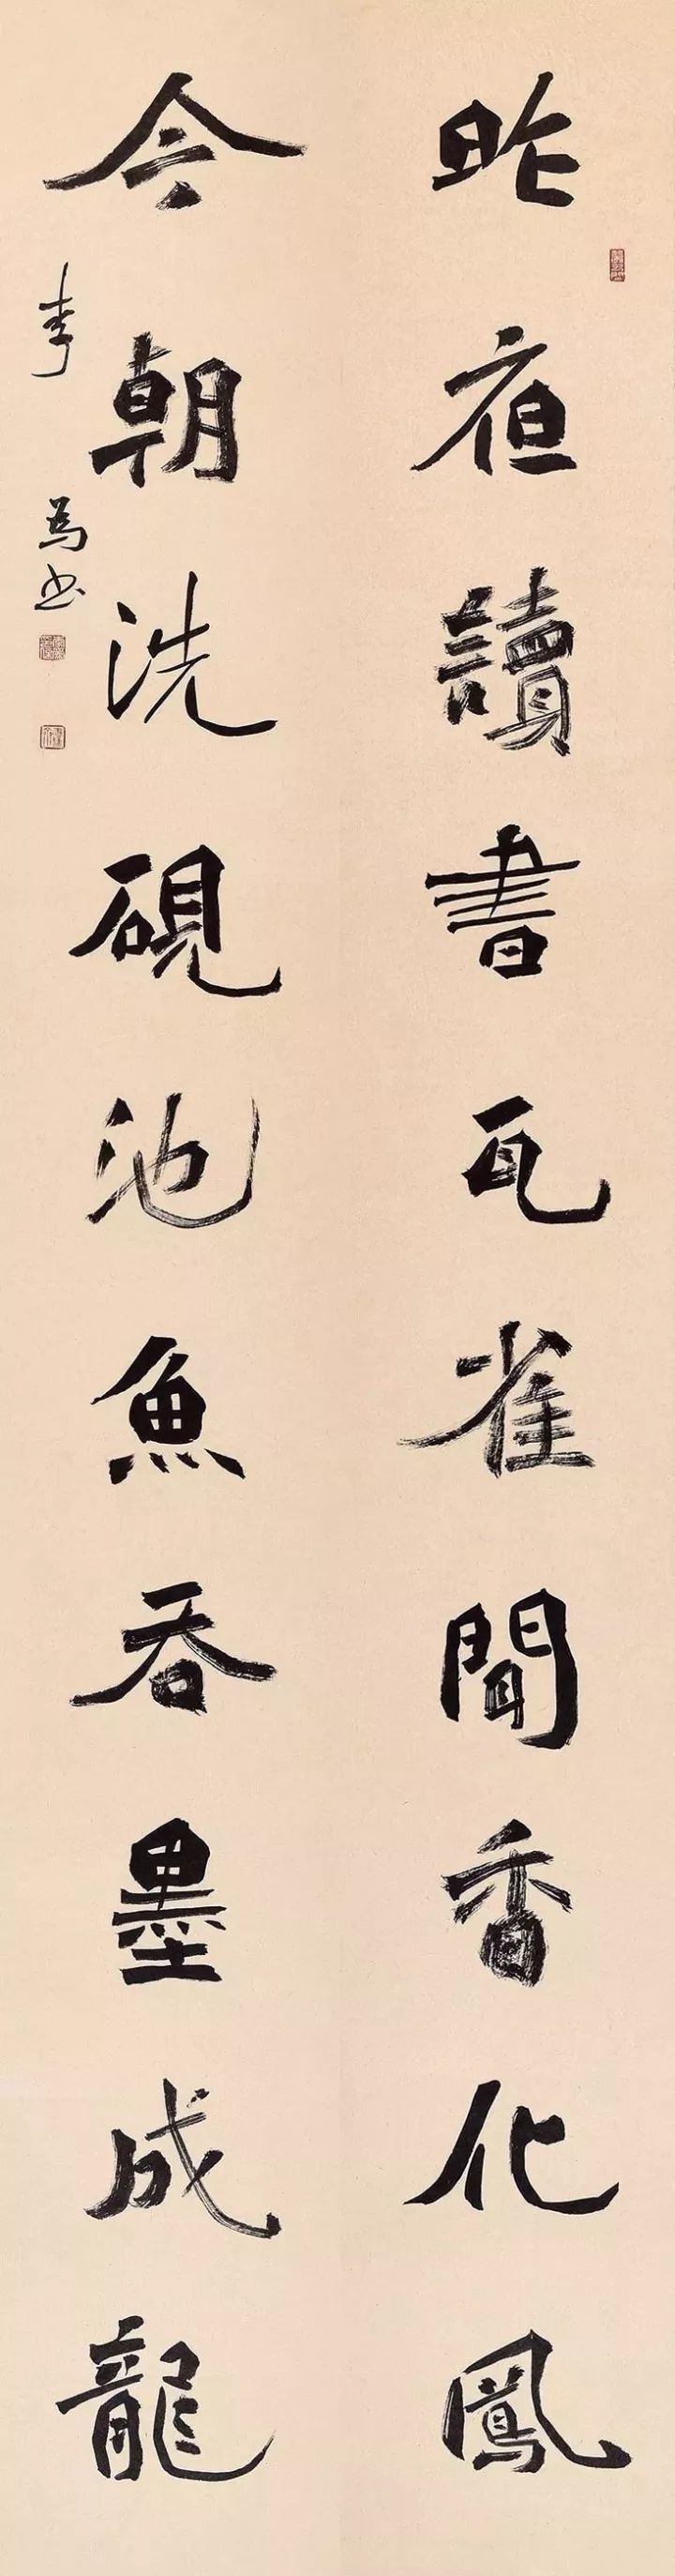 昨夜讀書瓦雀聞香化鳳
今朝洗硯池魚吞墨成龍
為书